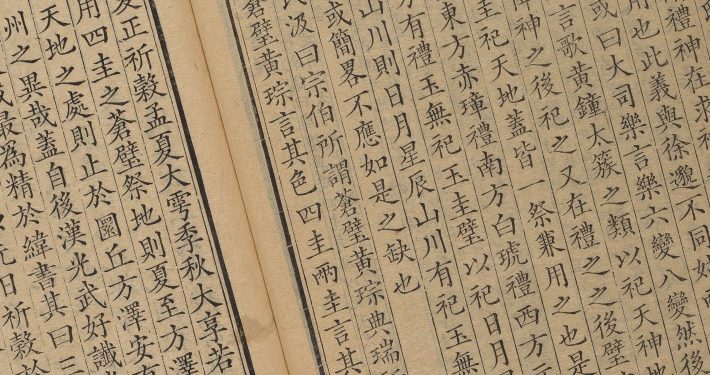 禮神在求神
用也此義與徐邈不同姑
或曰大司樂言樂六變八變然後
言歌黃鐘太簇之類以祀天神地
神之後祀之又在禮之之後璧
圭祀天地蓋皆一祭兼用之也是
東方赤璋禮南方白琥禮西方
方有禮玉無祀玉圭璧以祀日月
山川則日月星辰山川有祀玉無
或簡畧不應如是之缺也
氏汲曰宗伯所謂蒼璧黃琮典瑞
蒼璧黃琮言其色四圭兩圭言其
夏正祈穀孟夏大雩季秋大享若
用四圭之蒼璧祭地則夏至方澤
天地之處則止於圜丘方澤安有
州之異哉蓋自後漢光武好讖
最爲精於緯書其曰三
元日祈穀於